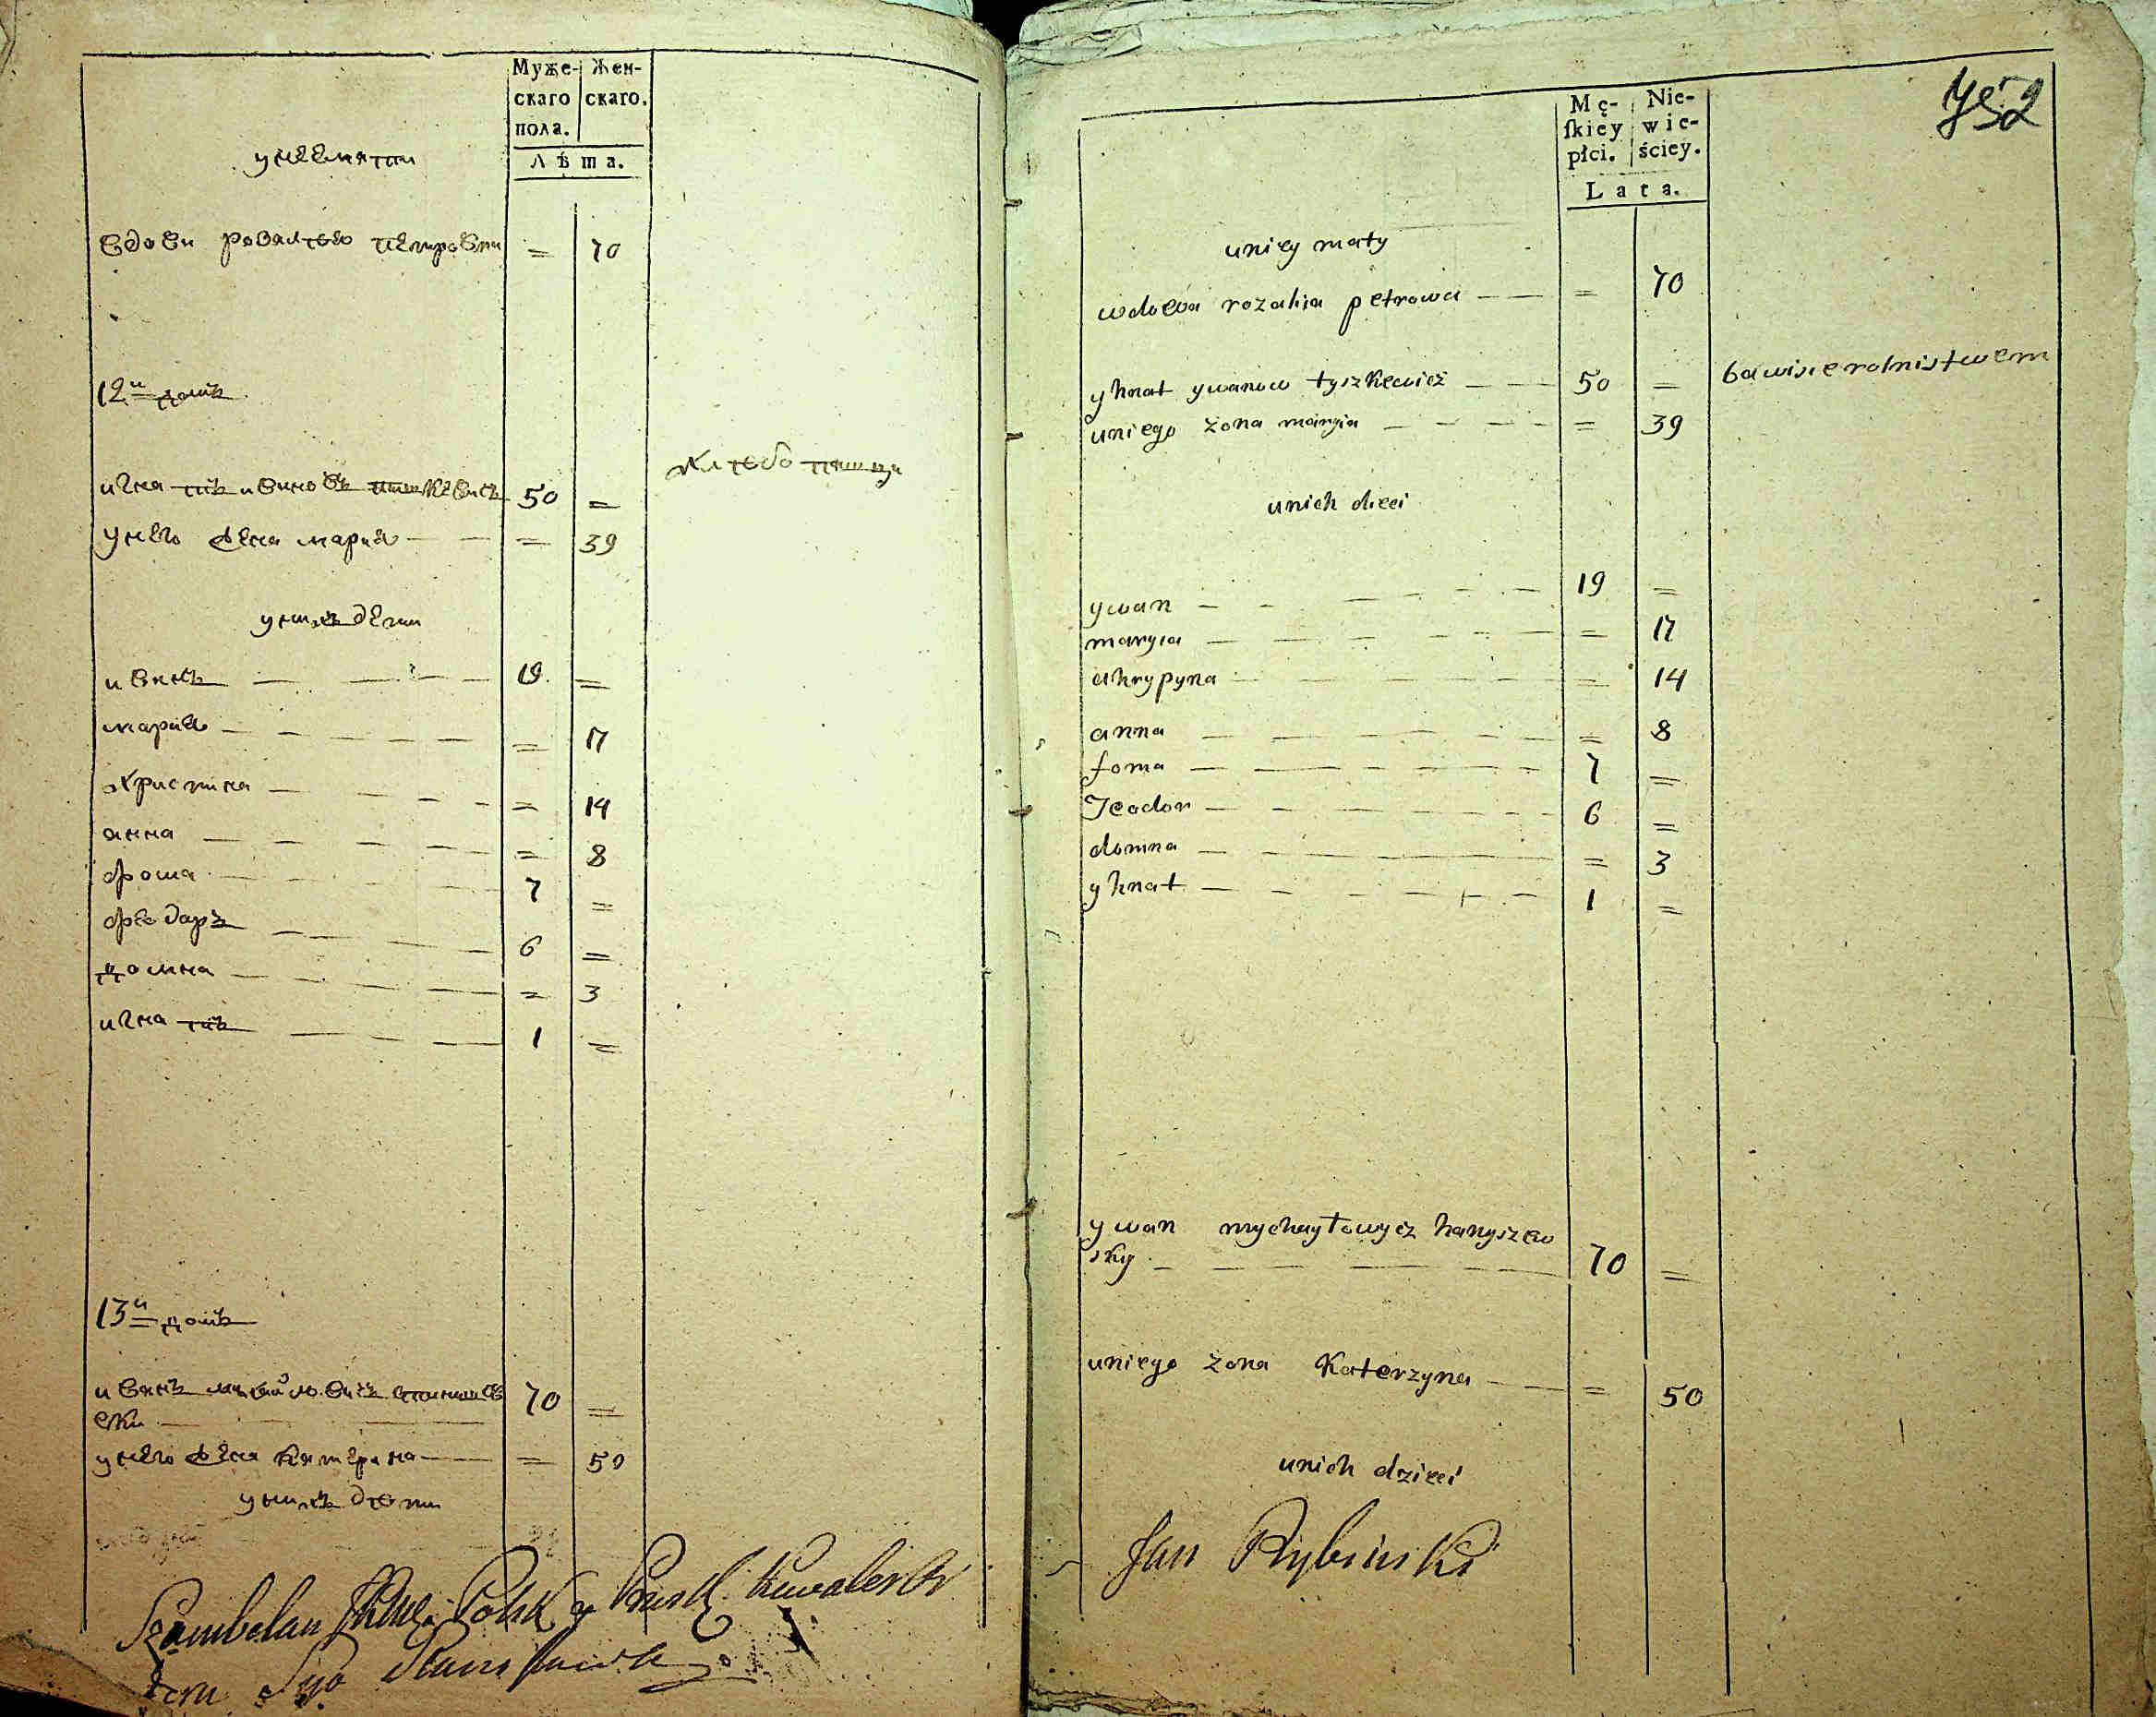 Муже- Жен-
скаго скаго.
пола.
Лѣта.
унеемати
вдови розалѣю петрови = 70
12й домъ
хлѣбопашци
игнатъ ивановъ тишкевичъ 50 =
унего жена мария = 39
унихъ дети
иванъ 19 =
мария = 17
христина = 14
анна = 8
фома 7 =
феодоръ 6 =
домна = 3
игнатъ 1 =
13й домъ
иванъ михайловичъ
ски 70 =
унего жена катерина = 50
унихъ дѣти
Szambelan Polsk y Kawaler Or
Stanisława
752
Mę- Nie-
ſkiey wie-
płci. ściey.
Lata.
uniey maty
wdowa rozalija petrowa = 70
yhnat ywanow tyszkewicz 50 = bawisie rolnistwem
uniego żona maryia = 39
unich dieci
ywan 19 =
maryia = 17
ahrypyna = 14
anna = 8
foma 7 =
Teodor 6 =
domna = 3
yhnat 1 =
ywan mychayłowycz hanyszew
sky 70 =
uniego żona Katerzyna = 50
unich dzieci
Jan Rybinski